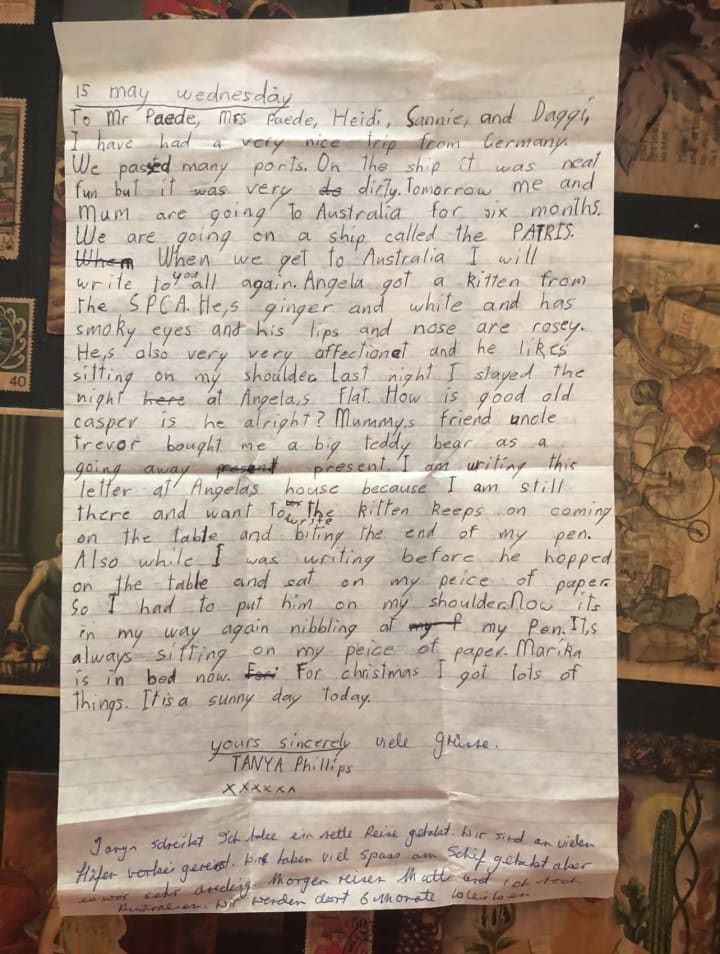 15 may wednesday
To Mr Paede, Mrs Paede, Heidi, Sannie, and Daggi,
I have had a very nice trip from Germany.
We passed many ports. On the ship it was neat
fun but it was very do dirty. Tomorrow me and
mum are going to Australia for six months.
We are going on a ship called the PATRIS.
When When we get to Australia I will
write to you all again. Angela got a kitten from
the S.P.C.A. He,s ginger and white and has
smoky eyes and his lips and nose are rosey.
He,s also very very affectionet and he likes
sitting on my shoulder. Last night I stayed the
night here at Angela,s flat. How is good old
casper is he alright? Mummy,s friend uncle
trevor bought me a big teddy bear as a
going away present present. I am writing this
letter at Angelas house because I am still
there and want to write the kitten keeps on coming
on the table and biting the end of my pen.
Also while I was writing before he hopped
on the table and sat on my peice of paper
So I had to put him on my shoulder. Now its
in my way again nibbling at my my Pen. It,s
always sitting on my peice of paper. Marika
is in bed now. For christmas I got lots of
things. It is a sunny day today.
yours sincerely viele Grüsse.
TANYA Phillips
xxxxxx
Tanya schreibt Ich habe ein nette Reise gehabt. Wir sind an vielen
Häfen vorbei gereist. Wir haben viel Spass am Schif gehabt aber
es war sehr dreckig. Morgen reisen Mutti und ich nach
Australien. Wir werden dort 6 Monate bleiben.